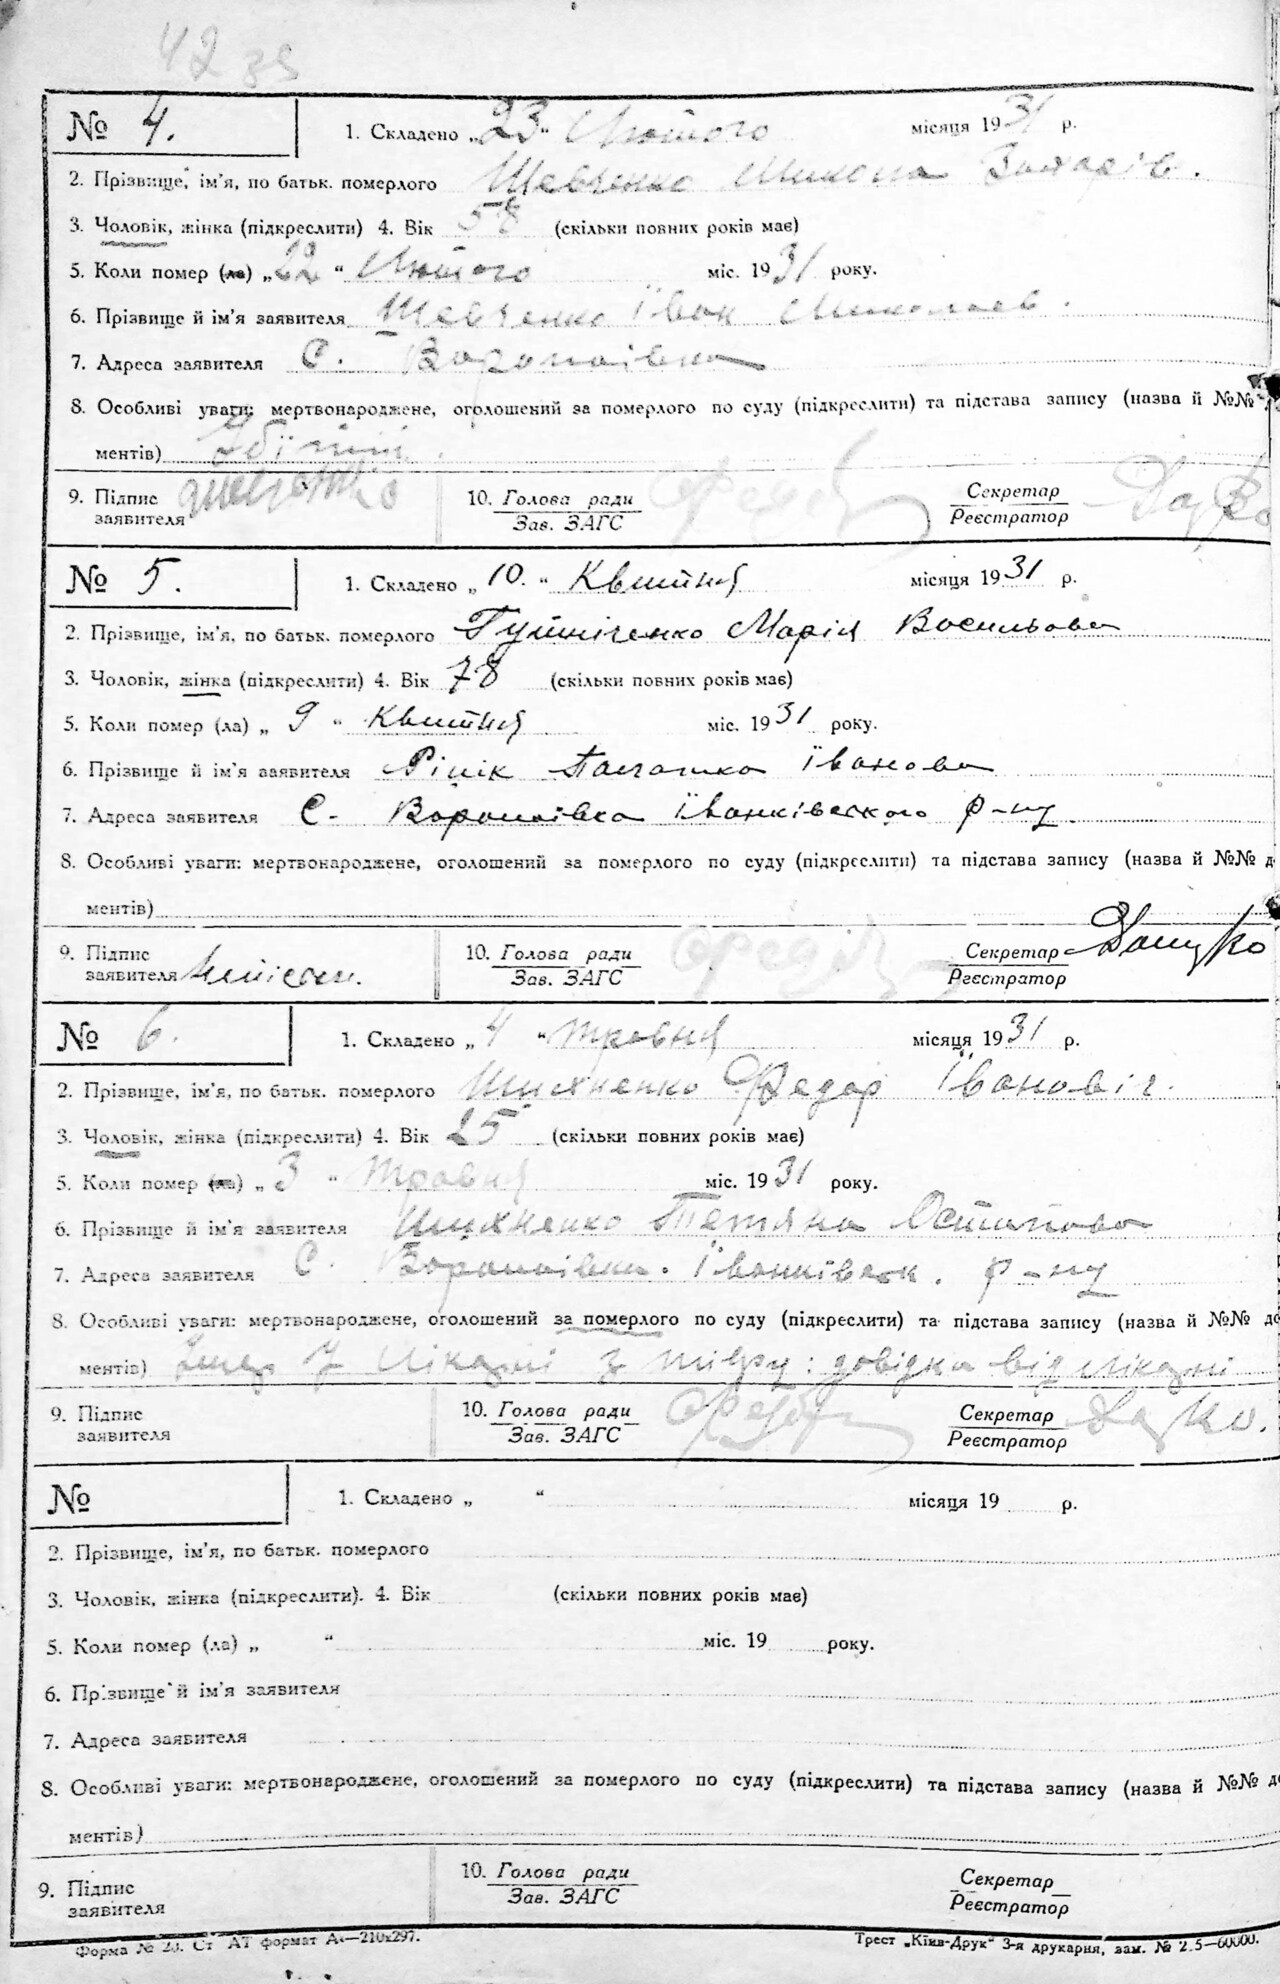 42 39
№ 4. 1. Складено „23“ Лютого місяця 1931 р.
2. Прізвище, ім'я, по батьк. померлого Шевченко Микола Захарів.
3. Чоловік, жінка (підкреслити) 4. Вік 58 (скільки повних років має)
5. Коли помер (ла) „22“ Лютого міс. 1931 року.
6. Прізвище й ім'я заявителя Шевченко Іван Миколаєв.
7. Адреса заявителя С. Воропаївка
8. Особливі уваги: мертвонароджене, оголошений за померлого по суду (підкреслити) та підстава запису (назва й №№
ментів) Убітий.
9. Підпис заявителя Шевченко 10. Голова ради Зав. ЗАГС Секретар Реєстратор
№ 5. 1. Складено „10.“ Квитня місяця 1931 р.
2. Прізвище, ім'я, по батьк. померлого Марія Васильова
3. Чоловік, жінка (підкреслити) 4. Вік 78 (скільки повних років має)
5. Коли помер (ла) „9“ Квитня міс. 1931 року.
6. Прізвище й ім'я заявителя Ріпік Палашка Іванова
7. Адреса заявителя С. Воропаївка Іванківського р-ну
8. Особливі уваги: мертвонароджене, оголошений за померлого по суду (підкреслити) та підстава запису (назва й №№ д
ментів)
9. Підпис заявителя 10. Голова ради Зав. ЗАГС Секретар Реєстратор
№ 6. 1. Складено „4“ травня місяця 1931 р.
2. Прізвище, ім'я, по батьк. померлого Шихненко Федор Івановіч.
3. Чоловік, жінка (підкреслити) 4. Вік 25 (скільки повних років має)
5. Коли помер (ла) „3“ травня міс. 1931 року.
6. Прізвище й ім'я заявителя Шихненко Тетяна Остапова
7. Адреса заявителя С. Воропаївка. Іванківськ. р-ну
8. Особливі уваги: мертвонароджене, оголошений за померлого по суду (підкреслити) та підстава запису (назва й №№ до
ментів) Умер У лікарні з тифу: довідка від лікарні
9. Підпис заявителя 10. Голова ради Зав. ЗАГС Секретар Реєстратор
№ 1. Складено „ “ місяця 19 р.
2. Прізвище, ім'я, по батьк. померлого
3. Чоловік, жінка (підкреслити). 4. Вік (скільки повних років має)
5. Коли помер (ла) „ “ міс. 19 року.
6. Прізвище й ім'я заявителя
7. Адреса заявителя
8. Особливі уваги: мертвонароджене, оголошений за померлого по суду (підкреслити) та підстава запису (назва й №№ до
ментів)
9. Підпис заявителя 10. Голова ради Зав. ЗАГС Секретар Реєстратор
Форма № 23. Ст АТ формат А₄—210x297. Трест „Київ-Друк“ 3-я друкарня, зам. № 2.5—60000.